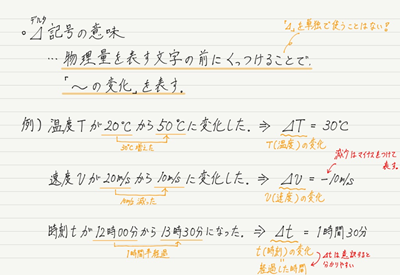 デルタ
◦ Δ 記号の意味
「Δ」を単独で使うことはない!!
… 物理量を表す文字の前にくっつけることで、
「〜の変化」を表す。
例) 温度Tが20℃から50℃に変化した. ⇒ ΔT = 30℃
30℃増した
T(温度)の変化
減少はマイナスをつけて表す。
速度Vが20m/sから10m/sに変化した. ⇒ ΔV = -10m/s
10m/s減した
V(速度)の変化
時刻tが12時00分から13時30分になった. ⇒ Δt = 1時間30分
1時間半経過
t(時刻)の変化
経過した時間
Δtは意訳すると分かりやすい